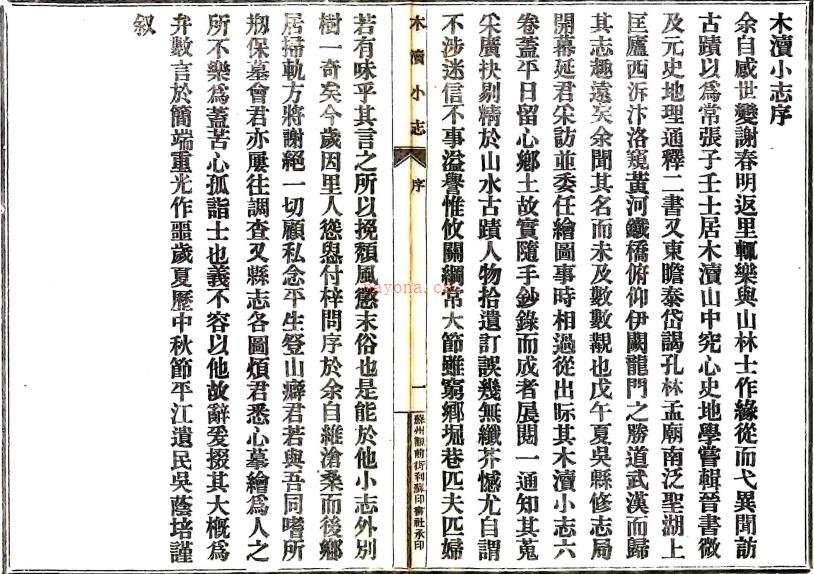 木瀆小志序
余自感世變謝春明返里輒樂與山林士作緣從而弋異聞訪
古蹟以爲常張子壬士居木瀆山中究心史地學嘗輯晉書微
及元史地理通釋二書又東瞻泰岱謁孔林孟廟南泛聖湖上
匡廬西泝汴洛窺黃河鐵橋俯仰伊闕龍門之勝道武漢而歸
其志趣遠矣余聞其名而未及數數覯也戊午夏吳縣修志局
開幕延君采訪並委任繪圖事時相過從出眎其木瀆小志六
卷蓋平日留心鄉土故實隨手鈔錄而成者展閱一通知其蒐
采廣抉剔精於山水古蹟人物拾遺訂誤幾無纖芥憾尤自謂
不涉迷信不事溢譽惟攸關綱常大節雖窮鄉堀巷匹夫匹婦
木瀆小志
序
一
蘇州觀前街利蘇印書社承印
若有味乎其言之所以挽頹風懲末俗也是能於他小志外別
樹一奇矣今歲因里人慫恿付梓問序於余自維滄桑而後鄉
居掃軌方將謝絕一切顧私念平生登山癖君若與吾同嗜所
剏保墓會君亦屢往調查又縣志各圖煩君悉心摹繪爲人之
所不樂爲蓋苦心孤詣士也義不容以他故辭爰掇其大概爲
弁數言於簡端重光作噩歲夏歷中秋節平江遺民吳蔭培謹
叙
nayona.cn